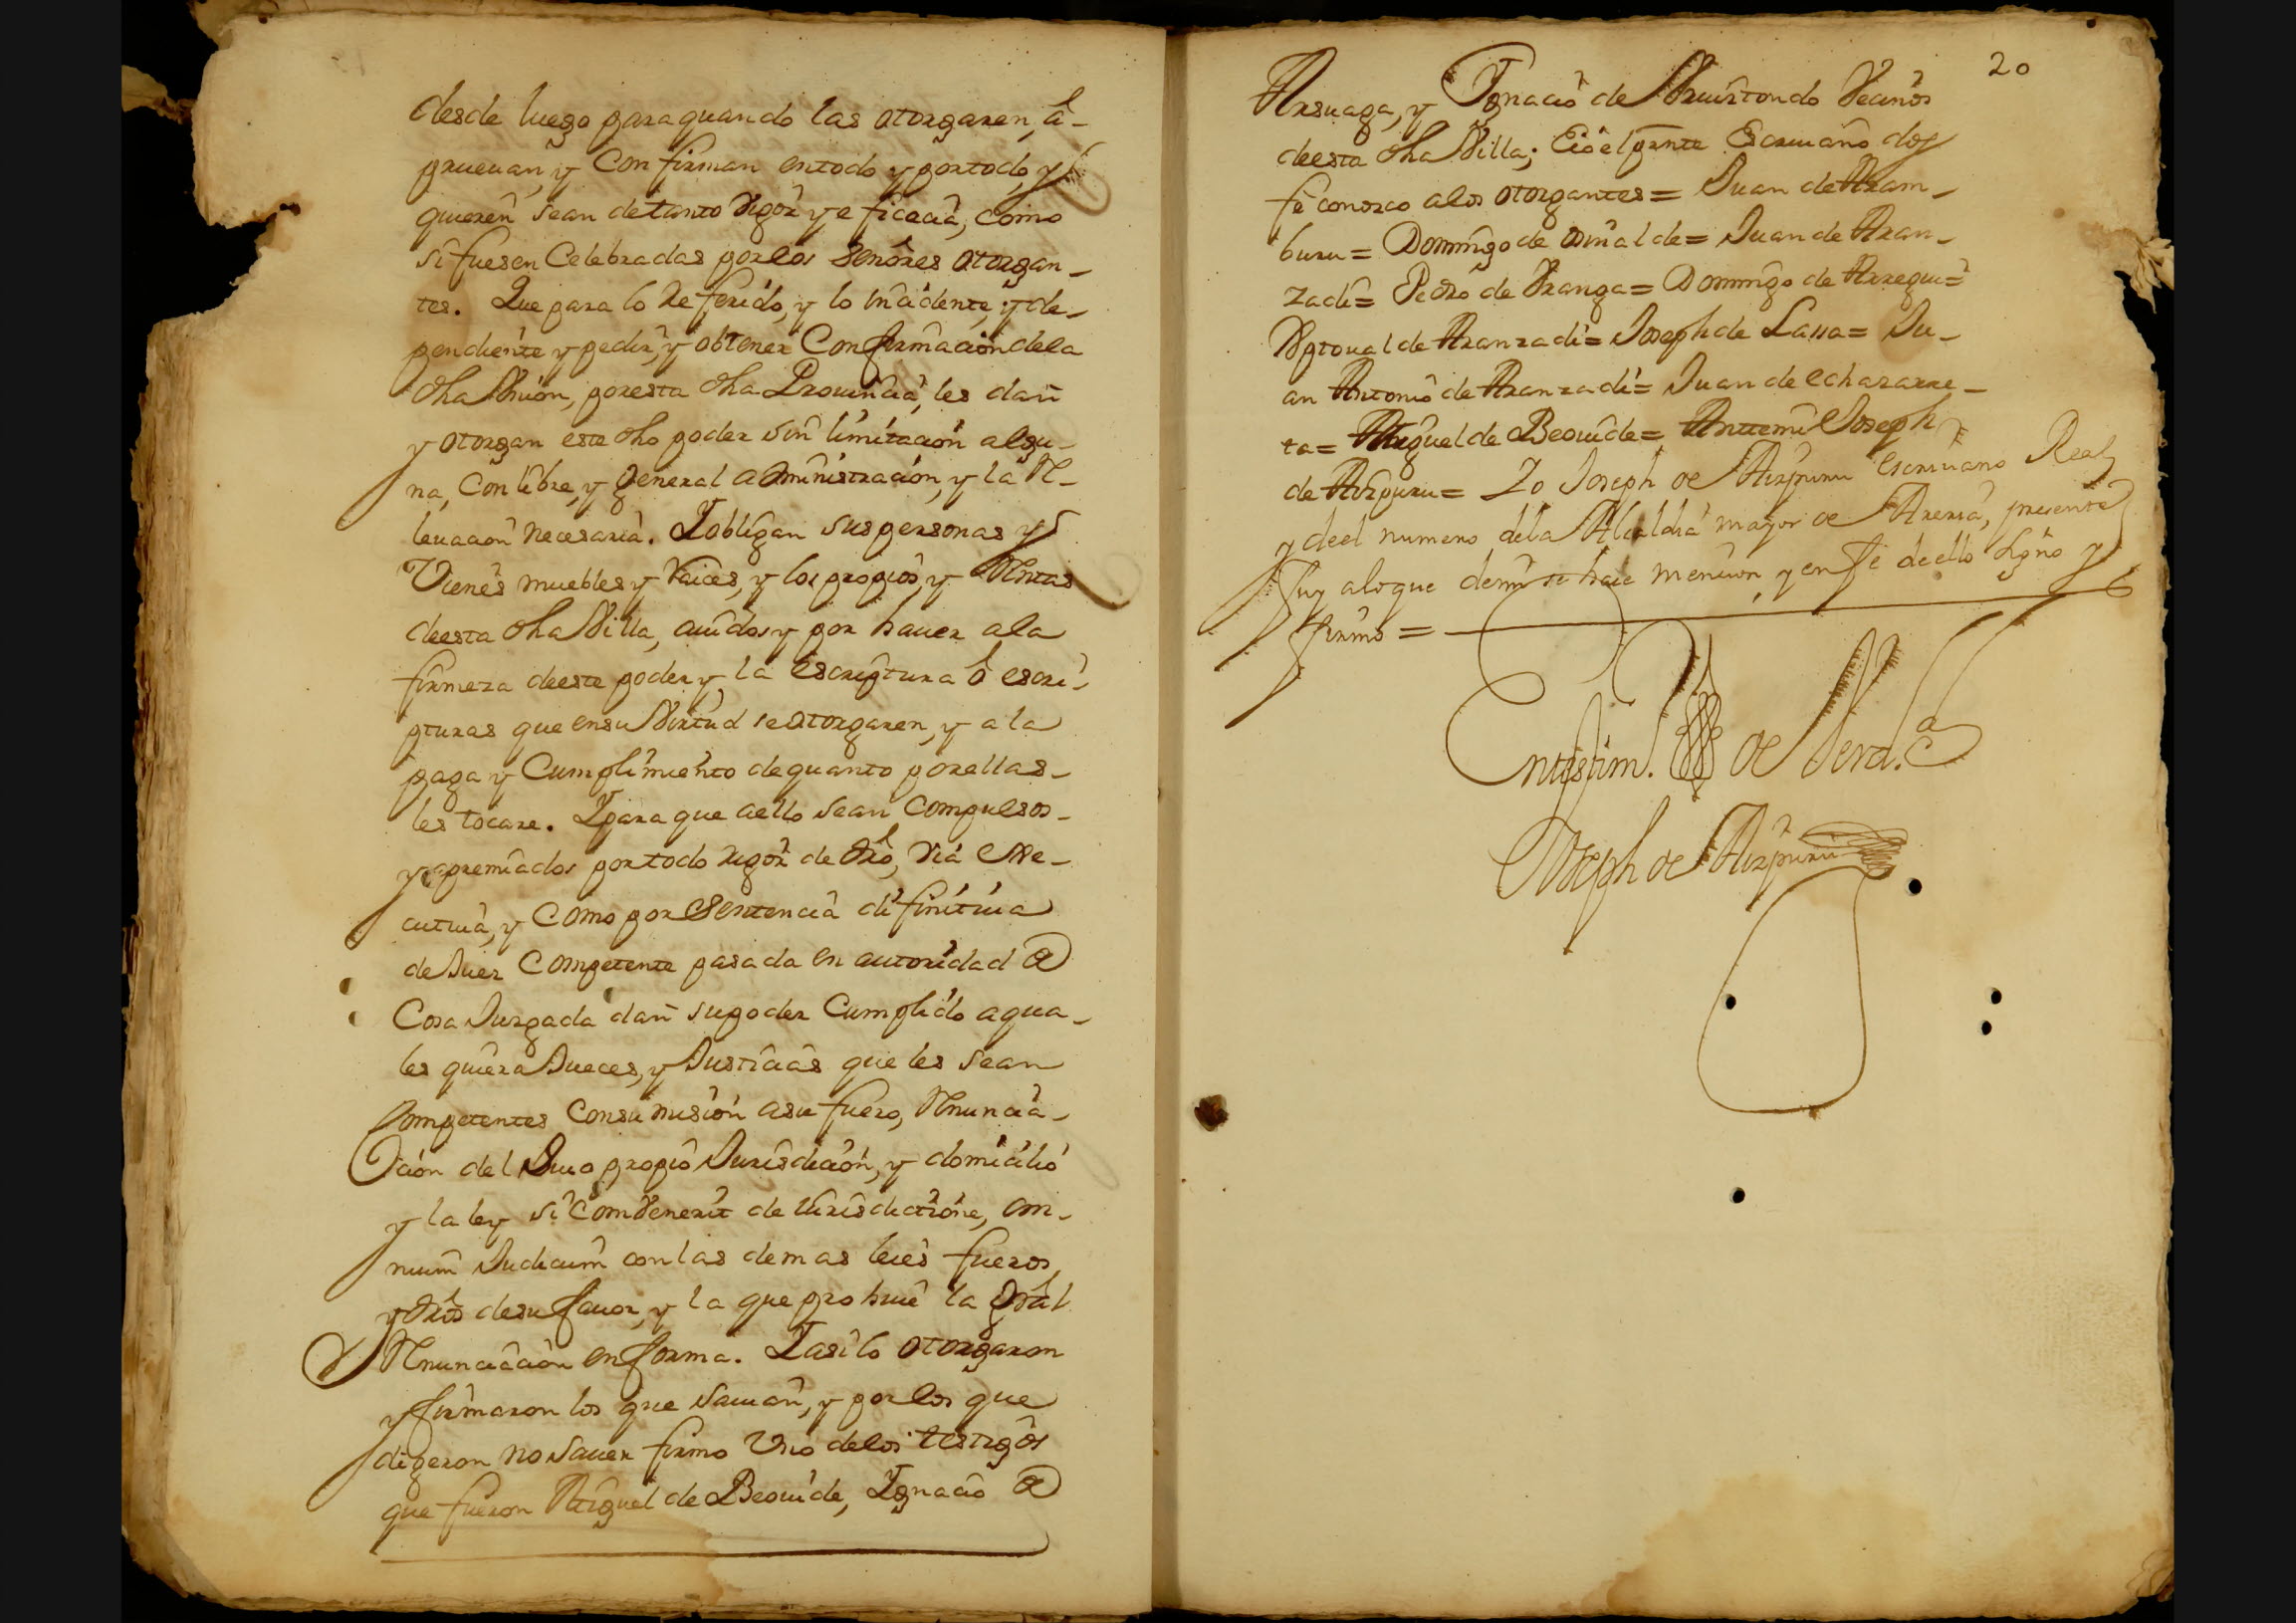 desde luego para quando las otorgaren, á-
prueuan, y Confirman en todo y por todo, y
quieren sean de tanto Vigor y eficacia, como
si fuesen Celebradas por los Señores otorgan-
tes. Que para lo Referido, y lo incidente, y de-
pendiente y pedir, y obtener Confirmacion de la
dha Vnion, por esta dha Prouincia, les dan
y otorgan este dho poder sin limitacion algu-
na, Con libre, y General administracion, y la Re-
leuacion necesaria. Y obligan sus personas y
Vienes muebles y Raices, y los propios, y Rentas
de esta dha Villa, auidos y por hauer a la
firmeza de este poder y la Escriptura ó escri-
pturas que en su Virtud se otorgaren, y a la
paga y Cumplimiento de quanto por ellas-
les tocare. Y para que a ello sean Compulsos-
y apremiados por todo rigor de dro, via exe-
cutiua, y Como por Sentencia difinitiua
de Juez Competente pasada en autoridad de
Cosa Juzgada dan su poder Cumplido a qua-
les quiera Jueces, y Justicias que les sean
Competentes Con su misión a su fuero, Renuncia-
cion del Suio propio Jurisdicion, y domicilio
y la ley Si Combenerit de Iurisdictione, om-
nium Judicum con las demas leies fueros,
y dros de su fauor, y la que prohiue la Gral
Renunciacion en forma. Y asi lo otorgaron
y firmaron los que Sauian, y por los que
digeron no Sauer firmo Vno de los testigos
que fueron Miguel de Beouide, Ygnacio de
20
Arsuaga, y Ygnacio de Aruistondo Vecinos
de esta dha Villa; E io el prnte Escriuano doy
fe conozco a los otorgantes = Juan de Aram-
buru = Domingo de Vinalde = Juan de Aran-
zadi = Pedro de Vranga = Domingo de Arregui =
Xptoual de Aranzadi = Joseph de Lassa = Ju-
an Antonio de Aranzadi = Juan de echazarre-
ta = Miguel de Beouide = Antemi Joseph
de Aizpuru = Yo Joseph de Aizpuru escriuano Real
y de el numero de la Alcaldia mayor de Areria, presente
fuy a lo que de mi se hace mencion, y en fe de ello signo y
firmo =
En testim.º de Verd.
Joseph de Aizpuru